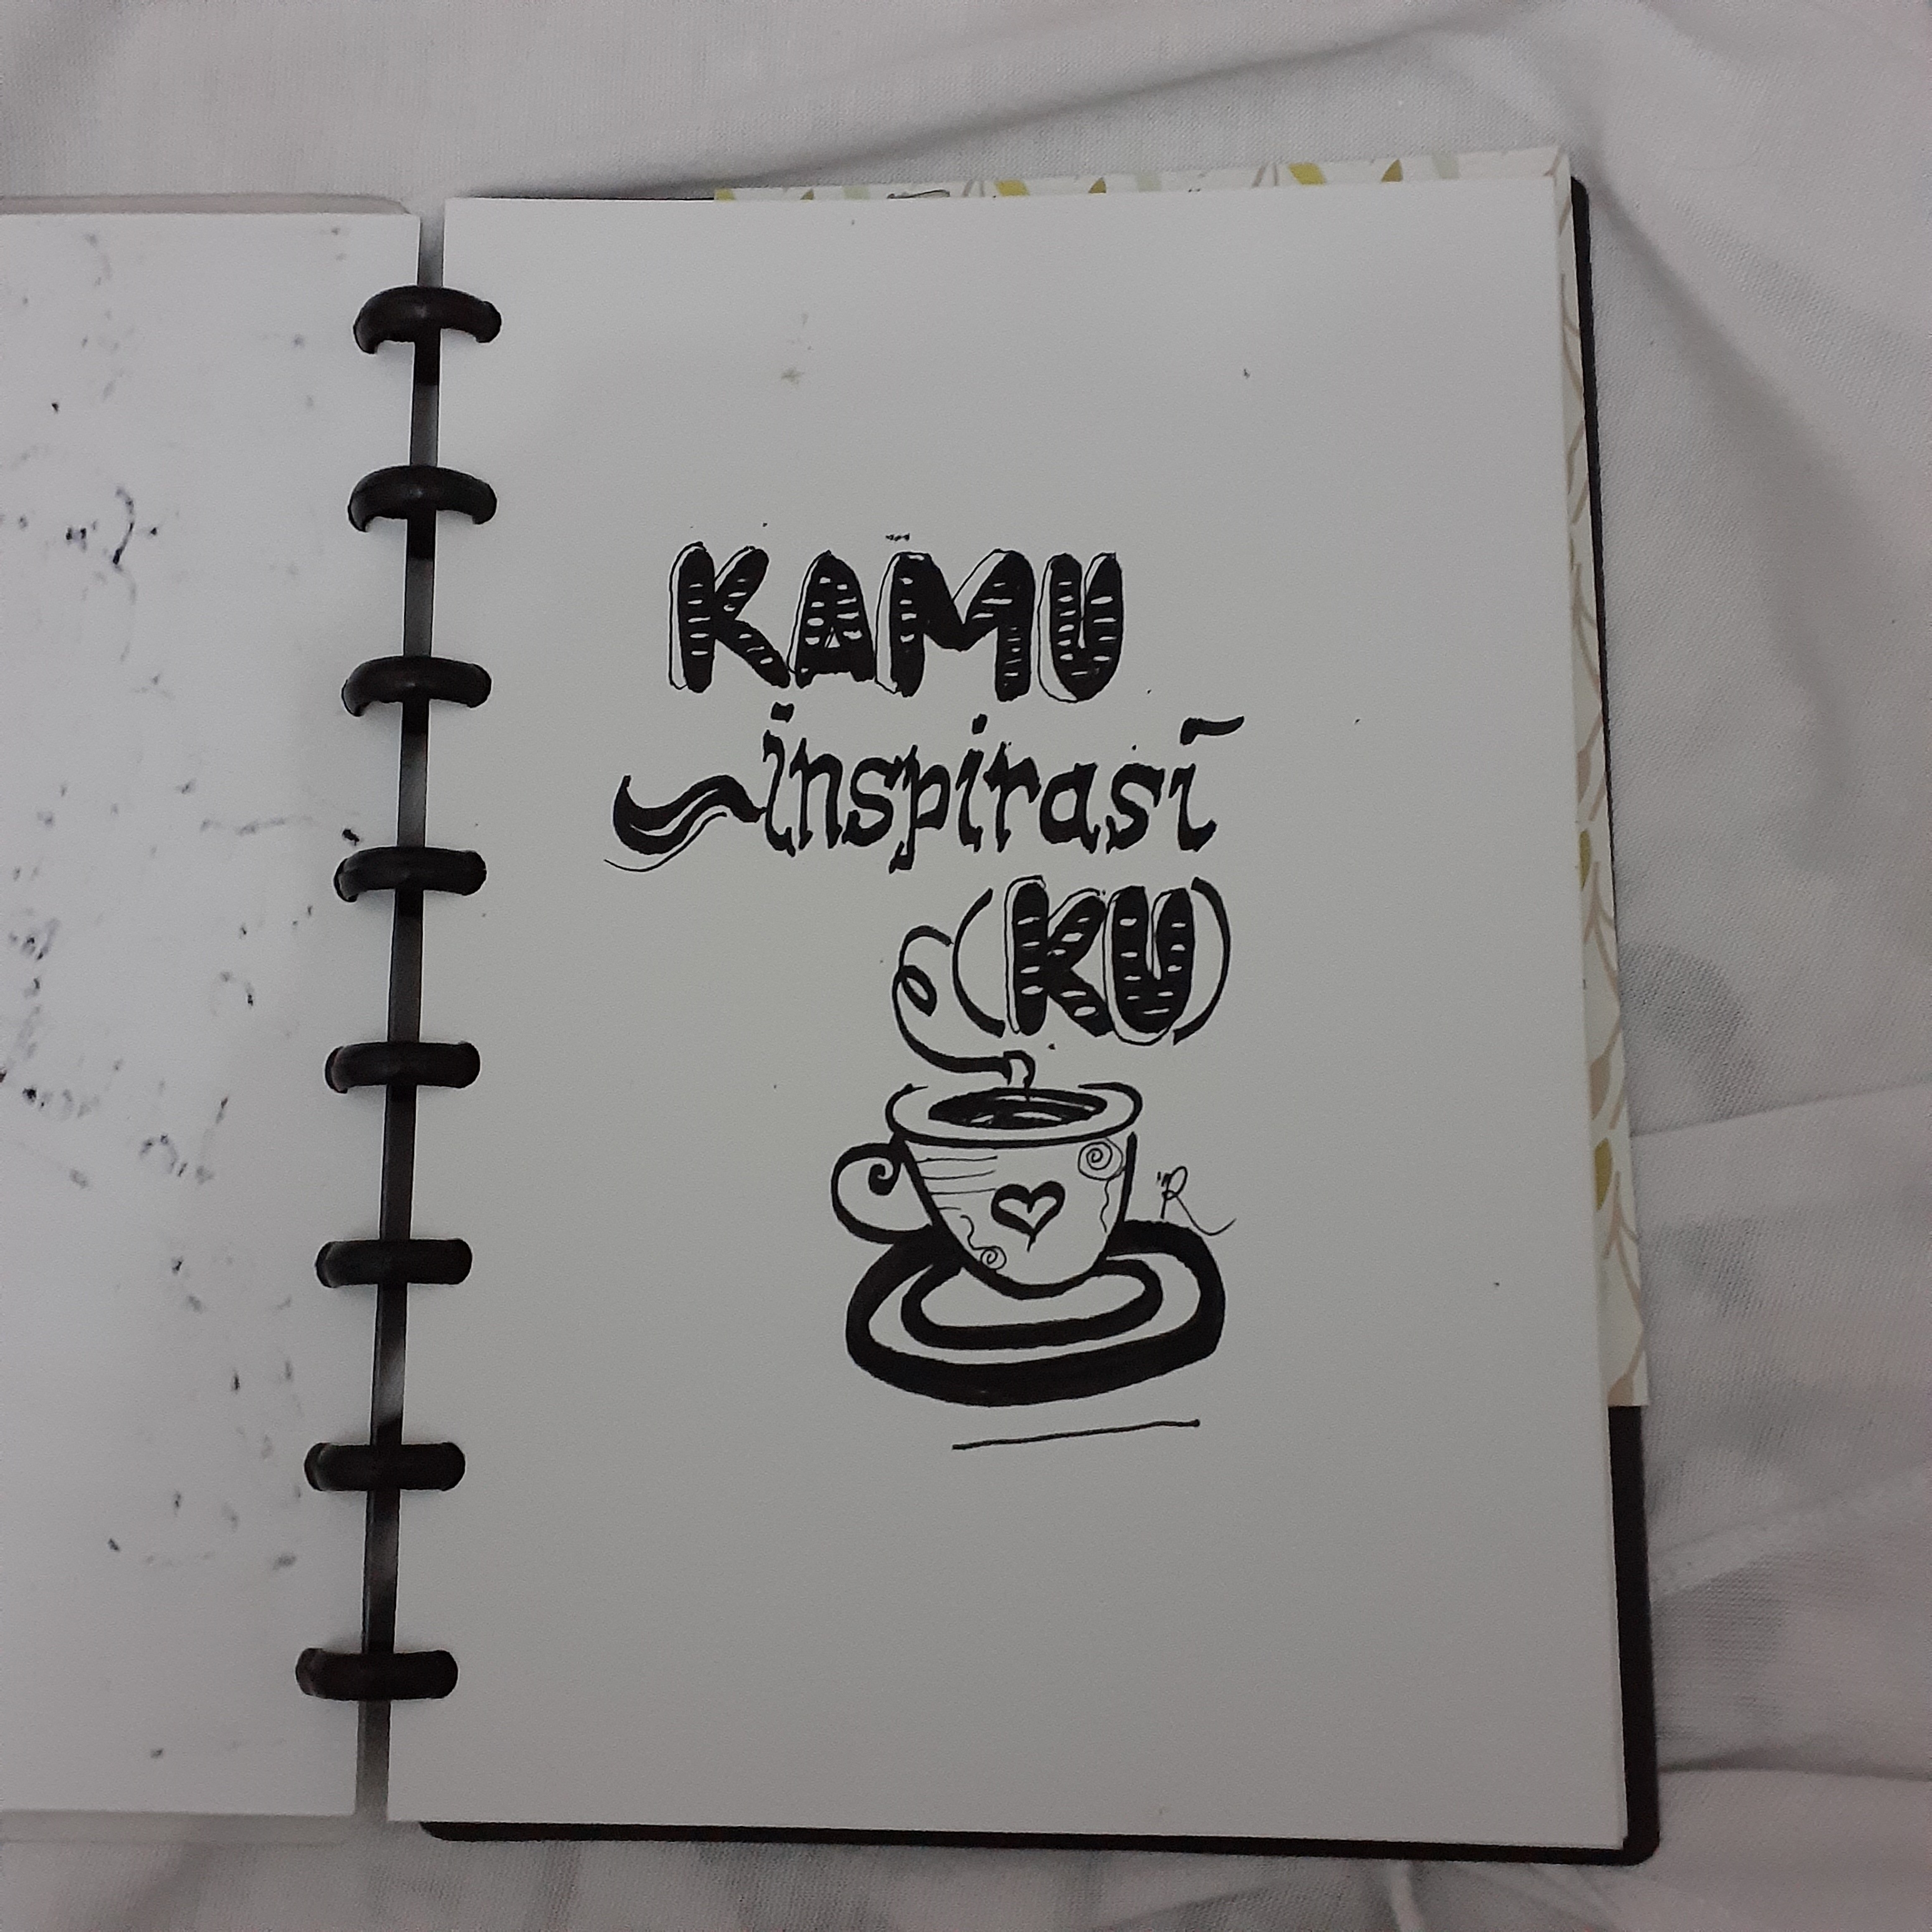 KAMU
inspirasi
(KU)
R